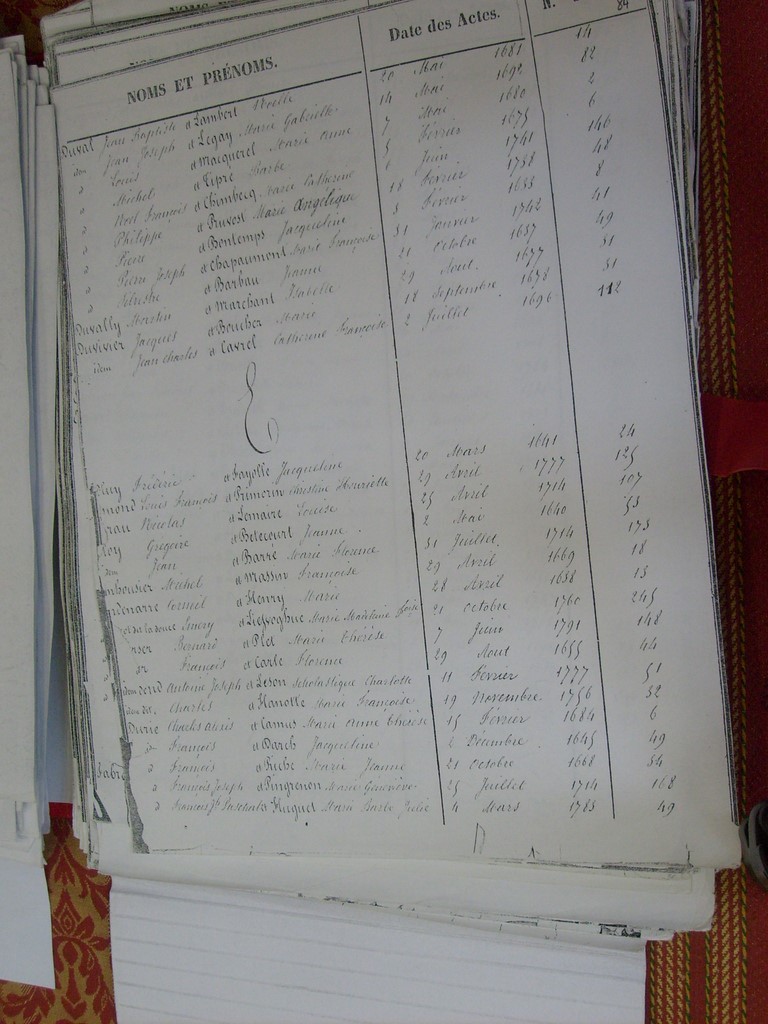 NOMS ET PRÉNOMS. Date des Actes. N. 84
Duval Jean Baptiste à Lambert Noëlle 20 Mai 1681 14
idem Jean Joseph à Legay Marie Gabrielle 14 Mai 1692 82
" Louis à Macquerel Marie Anne 7 Mai 1680 2
" Michel à Tipré Barbe 5 Février 1675 6
" Noel François à Chimbecq Marie Catherine Juin 1741 146
" Philippe à Pruvost Marie Angélique 18 Février 1738 48
" Pierre à Bontemps Jacqueline 3 Février 1653 8
" Pierre Joseph à Chapaumont Marie Françoise 31 Janvier 1742 41
" Silvestre à Barbau Jeanne 21 Octobre 1657 49
Duvally Martin à Marchant Isabelle 29 Aout 1677 51
Duvivier Jacques à Boucher Marie 18 Septembre 1678 51
idem Jean Charles à Cavrel Catherine Françoise 2 Juillet 1696 112
E
Frédéric à Fayolle Jacqueline 20 Mars 1641 24
mond Louis François à Primorin Christine Henriette 29 Avril 1777 125
Nicolas à Lemaire Louise 25 Avril 1714 107
loy Grégoire à Betecourt Jeanne 2 Mai 1640 53
idem Jean à Barré Marie Florence 31 Juillet 1714 173
Michel à Massin Françoise 29 Avril 1669 18
à Henry Marie 28 Avril 1638 13
Emery à Liefvoghue Marie Madelaine Loise 21 Octobre 1760 245
Bernard à Plet Marie Thérèse 7 Juin 1791 148
François à Carle Florence 29 Aout 1655 44
Antoine Joseph à Leson Scholastique Charlotte 11 Février 1777 51
Charles à Hanotte Marie Françoise 19 Novembre 1756 32
Charles Alexis à Camus Marie Anne Thérèse 15 Février 1684 6
François à Darch Jacqueline 6 Décembre 1645 49
François à Riche Marie Jeanne 21 Octobre 1668 54
François Joseph à Pingrenon Marie Géneviève 25 Juillet 1714 168
François Jh Paschal à Huguet Marie Barbe Julie 4 Mars 1783 49